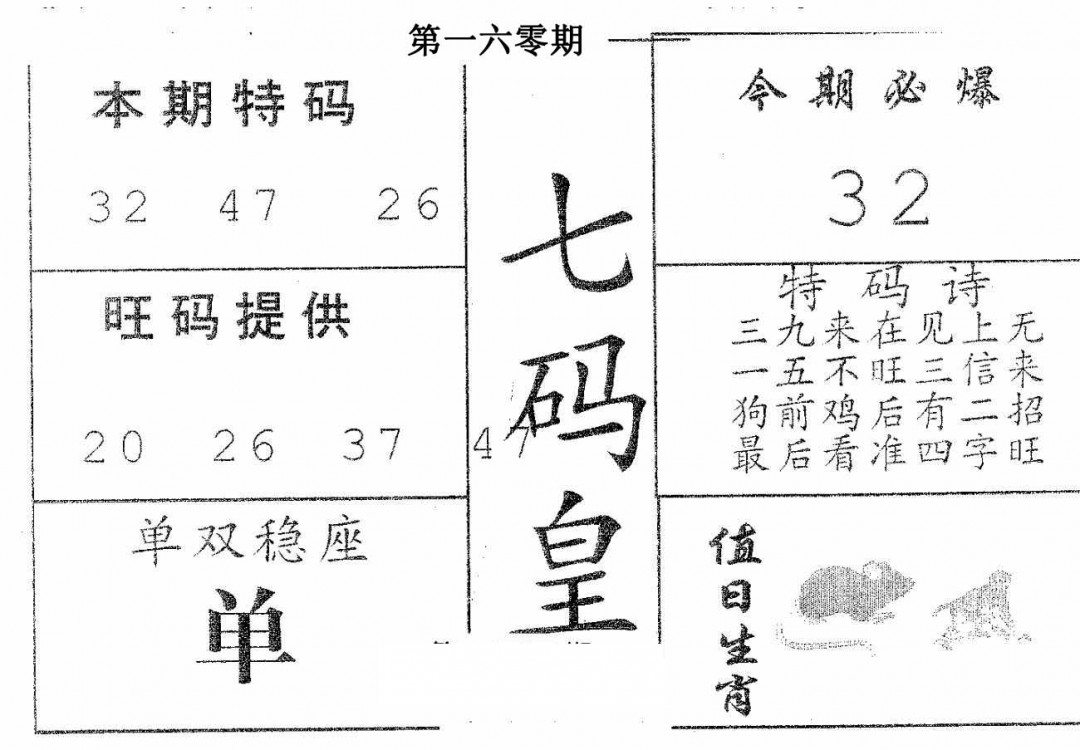 第一六零期
本期特码
32 47 26
旺码提供
20 26 37 47
单双稳座
单
七码皇
今期必爆
32
特码诗
三九来在见上无
一五不旺三信来
狗前鸡后有二招
最后看准四字旺
值日生肖